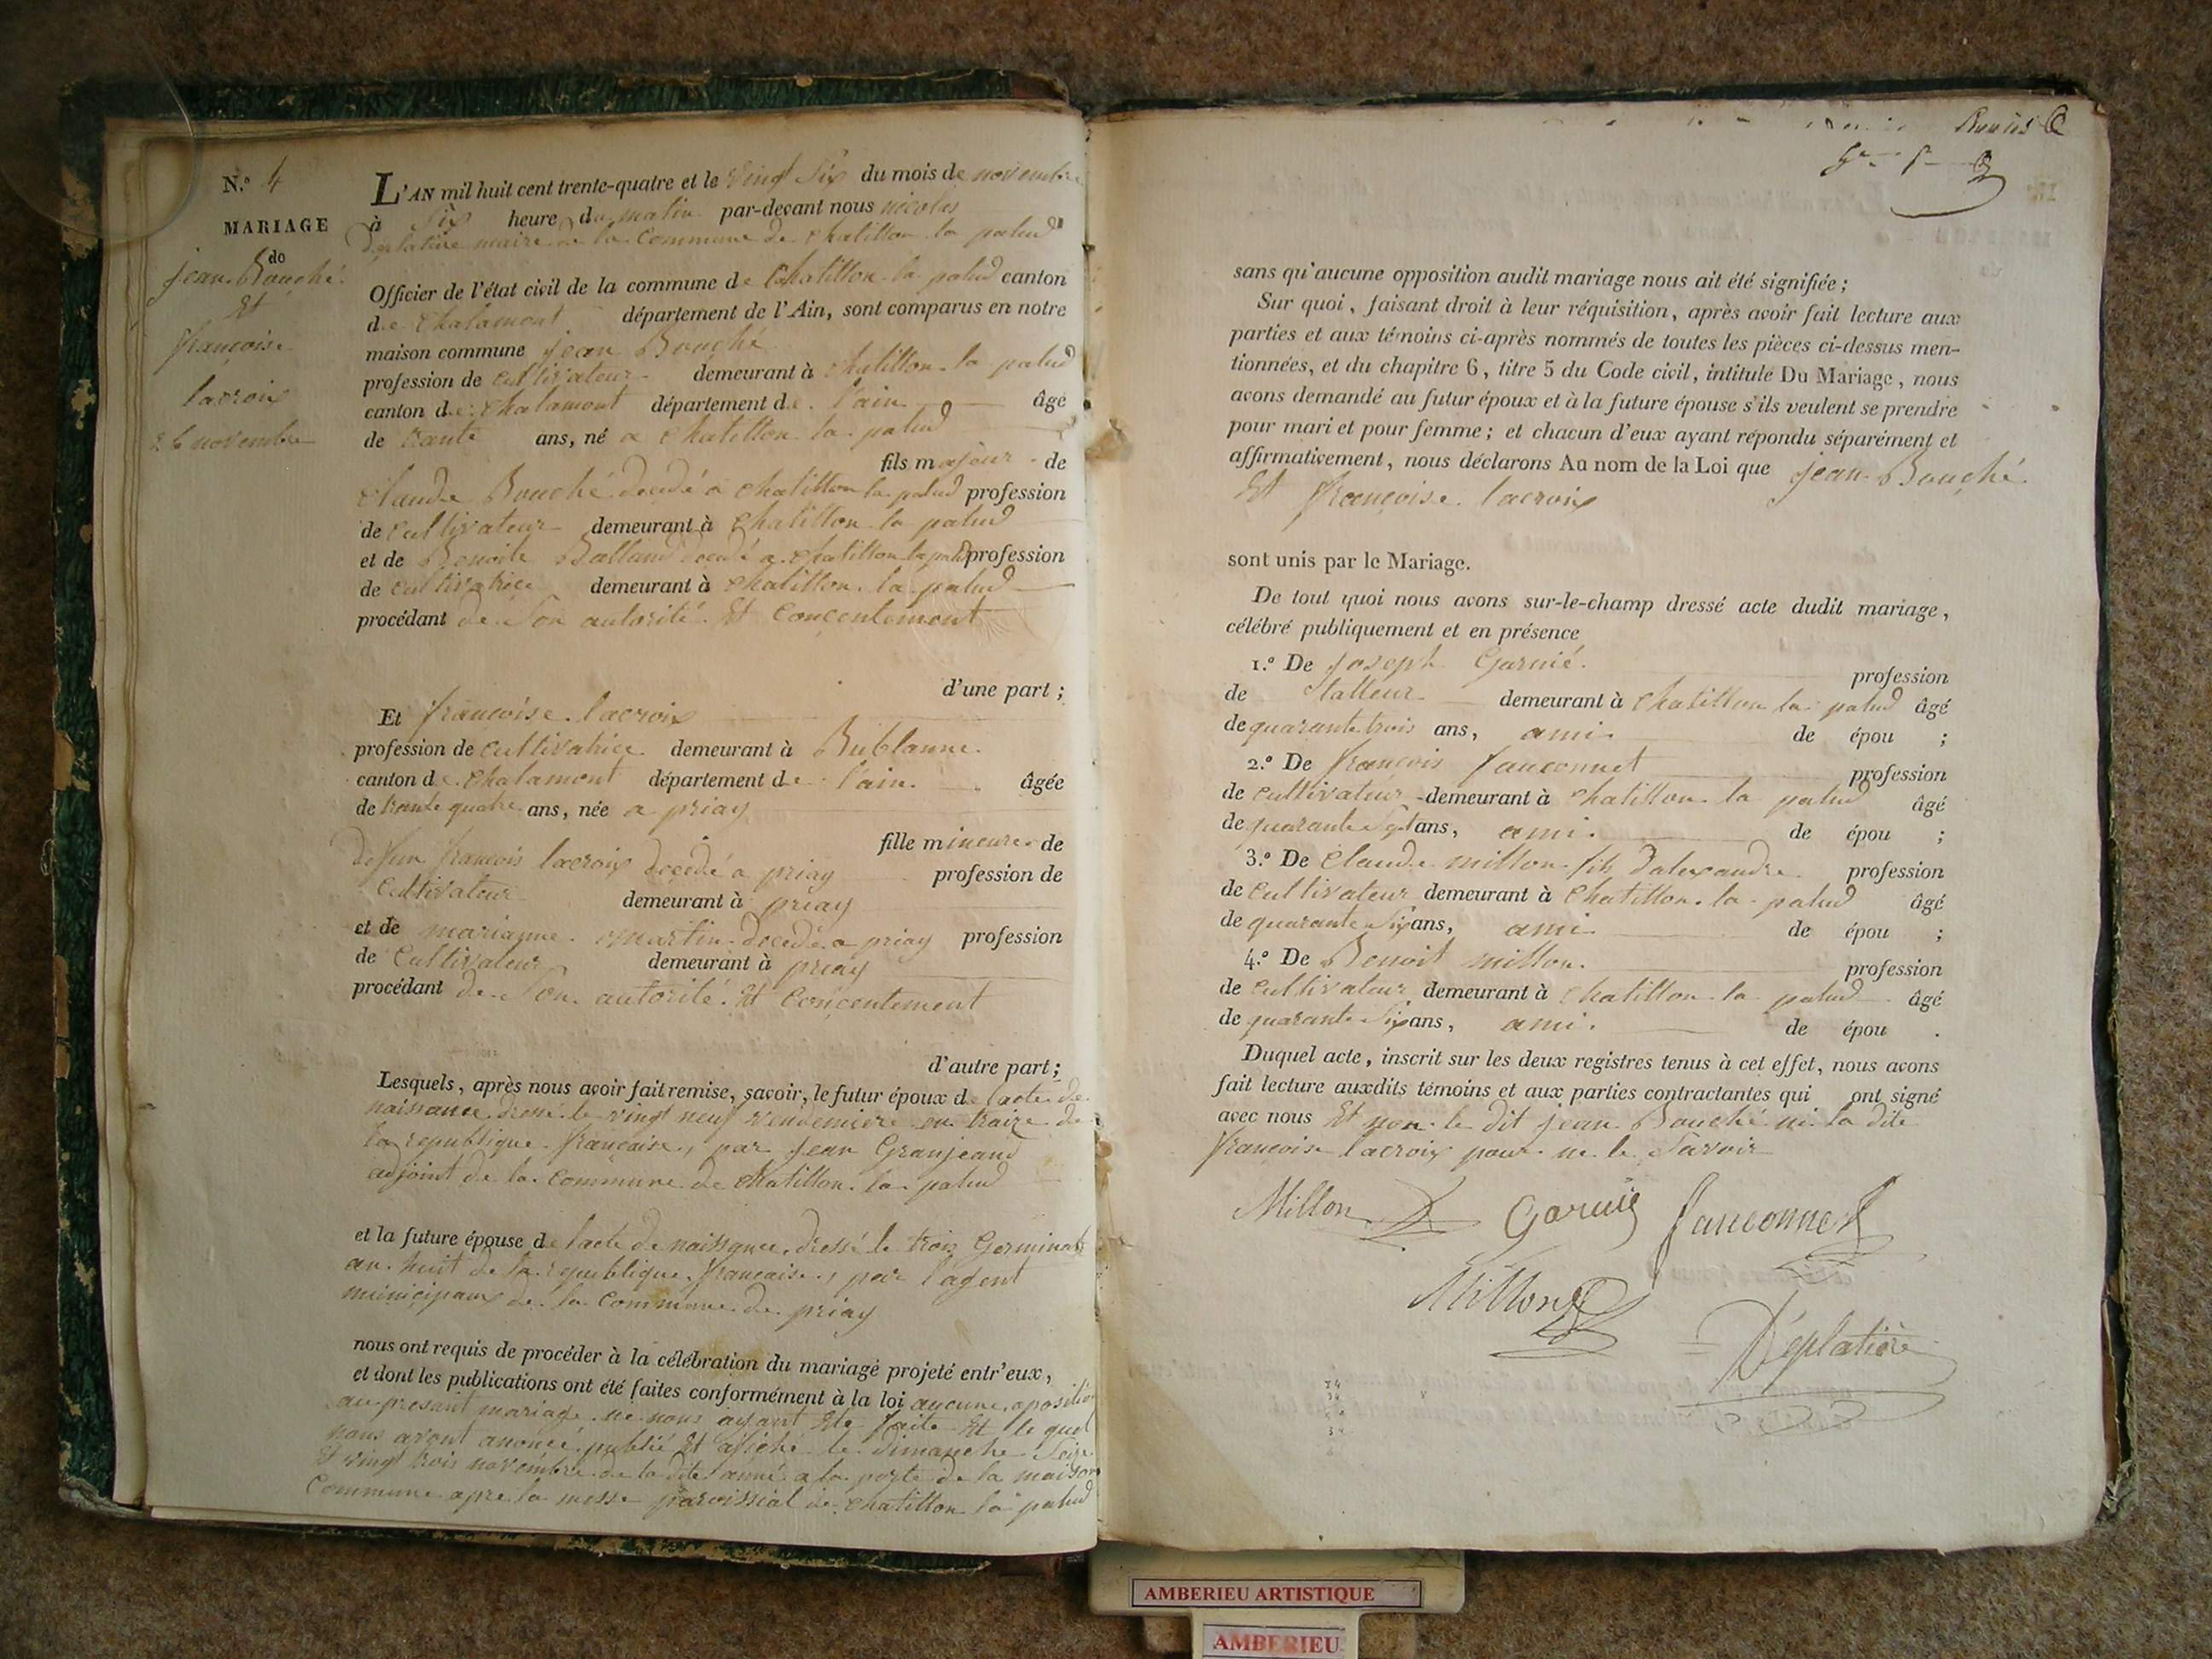 N.º 4
MARIAGE
de
jean Bouché
Et
françoise
lacroix
26 novembre
L'AN mil huit cent trente-quatre et le vingt Six du mois de novembre
à Six heure du matin par-devant nous nicolas
Deplatière maire de la Commune de chatillon la palud
Officier de l'état civil de la commune de Chatillon la palud canton
de chalamont département de l'Ain, sont comparus en notre
maison commune jean Bouché
profession de cultivateur demeurant à chatillon la palud
canton de chalamont département de l'ain âgé
de trante ans, né a chatillon la palud
fils majeur de
claude Bouché decedé a chatillon la palud profession
de cultivateur demeurant à chatillon la palud
et de Benoite Balland decedé a chatillon la palud profession
de cultivatrice demeurant à chatillon la palud
procédant de Son autorité Et Concentement
d'une part ;
Et françoise lacroix
profession de cultivatrice demeurant à Bublanne
canton de chalamont département de l'ain âgée
de trante quatre ans, née a priay
fille mineure de
defun francois lacroix decedé a priay profession de
Cultivateur demeurant à priay
et de marianne martin decedé a priay profession
de Cultivateur demeurant à priay
procédant de Son autorité Et Concentement
d'autre part ;
Lesquels, après nous avoir fait remise, savoir, le futur époux de lacte de
naissance dressé le vingt neuf vendemiere an traize de
la republique française, par jean Granjeand
adjoint de la commune de chatillon la palud
et la future épouse de lacte de naissance dressé le trois Germinal
an huit de la republique française, par l'agent
municipaux de la Commune de priay
nous ont requis de procéder à la célébration du mariage projeté entr'eux,
et dont les publications ont été faites conformément à la loi aucune oposition
au presant mariage ne nous ayant Ete faite Et le quel
nous avont anoncé publié Et afiché le dimanche Seize
Et vingt trois novembre de la dite anné a la porte de la maison
Commune apre la messe paroissial de chatillon la palud
sans qu'aucune opposition audit mariage nous ait été signifiée ;
Sur quoi, faisant droit à leur réquisition, après avoir fait lecture aux
parties et aux témoins ci-après nommés de toutes les pièces ci-dessus men-
tionnées, et du chapitre 6, titre 5 du Code civil, intitulé Du Mariage, nous
avons demandé au futur époux et à la future épouse s'ils veulent se prendre
pour mari et pour femme ; et chacun d'eux ayant répondu séparément et
affirmativement, nous déclarons Au nom de la Loi que jean Bouché
Et françoise lacroix
sont unis par le Mariage.
De tout quoi nous avons sur-le-champ dressé acte dudit mariage,
célébré publiquement et en présence
1.º De joseph Garnié profession
de demeurant à chatillon la palud âgé
de quarante trois ans, ami de épou ;
2.º De francois fauconnet profession
de cultivateur demeurant à chatillon la palud âgé
de quarante Sept ans, ami de épou ;
3.º De Claude millon fils dalexandre profession
de cultivateur demeurant à chatillon la palud âgé
de quarante Six ans, ami de épou ;
4.º De Benoit millon profession
de cultivateur demeurant à chatillon la palud âgé
de quarante Six ans, ami de épou .
Duquel acte, inscrit sur les deux registres tenus à cet effet, nous avons
fait lecture auxdits témoins et aux parties contractantes qui ont signé
avec nous Et non le dit jean Bouché ni la dite
françoise lacroix pour ne le Savoir
Millon Garnié fauconnet
Millon
Déplatière
AMBERIEU ARTISTIQUE
AMBERIEU